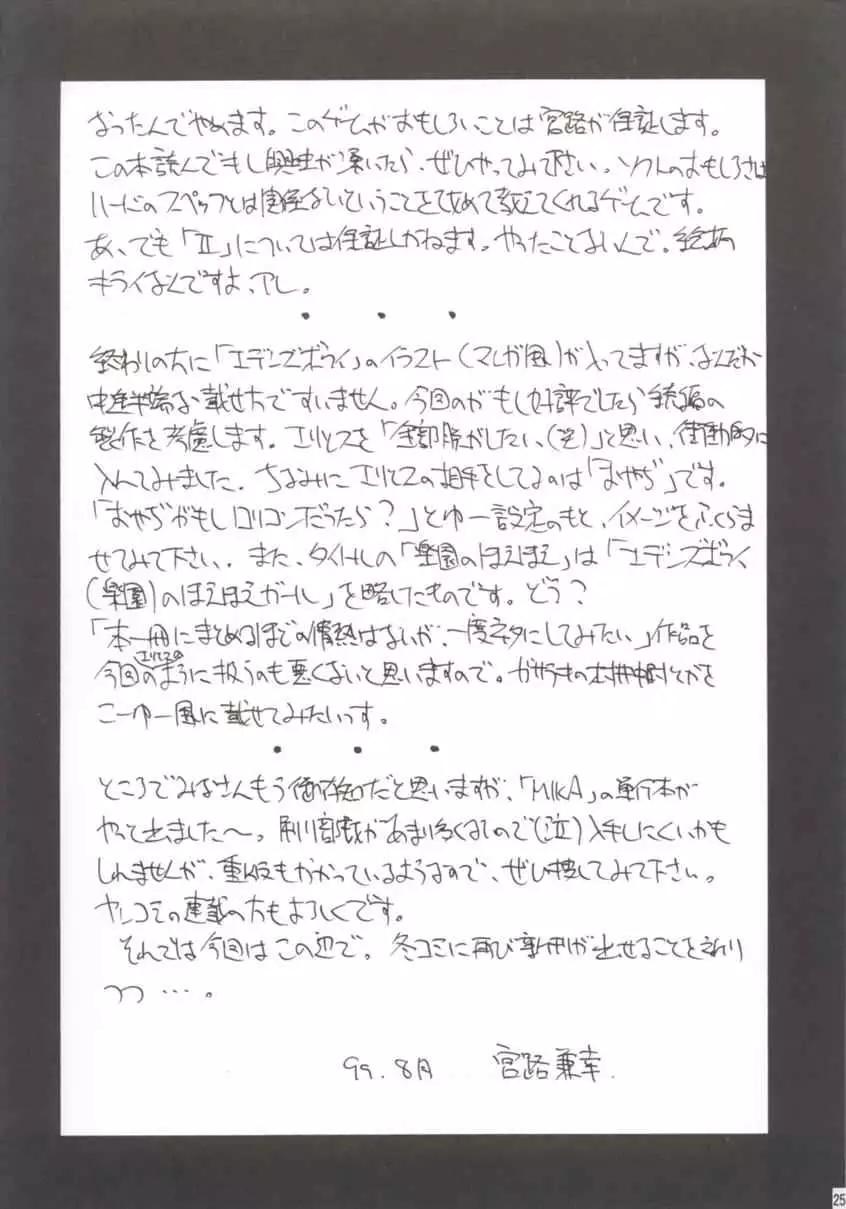 なったんでやめます。このゲームがおもしろいことは宮路が保証します。
この本読んでもし興味が湧いたら、ぜひやってみて下さい。ソフトのおもしろさは
ハードのスペックとは関係ないということを改めて教えてくれるゲームです。
あ、でも「Ⅱ」については保証しかねます。やったことないんで。絵柄
キライなんですよ、アレ。
・ ・ ・
終わりの方に「エデンズボゥイ」のイラスト(マンガ風)が入ってますが、なんだか
中途半端な載せ方ですいません。今回のがもし好評でしたら続編の
製作を考慮します。エリシスを「全部脱がしたい、(笑)」と思い、衝動的に
入れてみました。ちなみにエリシスの相手をしてるのは「おやぢ」です。
「おやぢがもしロリコンだったら?」とゆー設定のもと、イメージをふくらま
せてみて下さい。また、タイトルの「楽園のほえほえ」は「エデンズボゥイ
(楽園)のほえほえガール」を略したものです。どう?
「本一冊にまとめるほどの情熱はないが、一度ネタにしてみたい」作品を
今回のエリシスのように扱うのも悪くないと思いますので。ガサラキの
こーゆー風に載せてみたいっす。
・ ・ ・
ところでみなさんもう御存知だと思いますが、「MIKA」の単行本が
やっと出ました〜。刷り部数があまり多くないので(泣)入手しにくいかも
しれませんが、重版もかかっているようなので、ぜひ捜してみて下さい。
ヤンコミの連載の方もよろしくです。
それでは今回はこの辺で。冬コミに再び新刊が出せることを祈り
つつ…。
99. 8月 宮路兼幸.
25